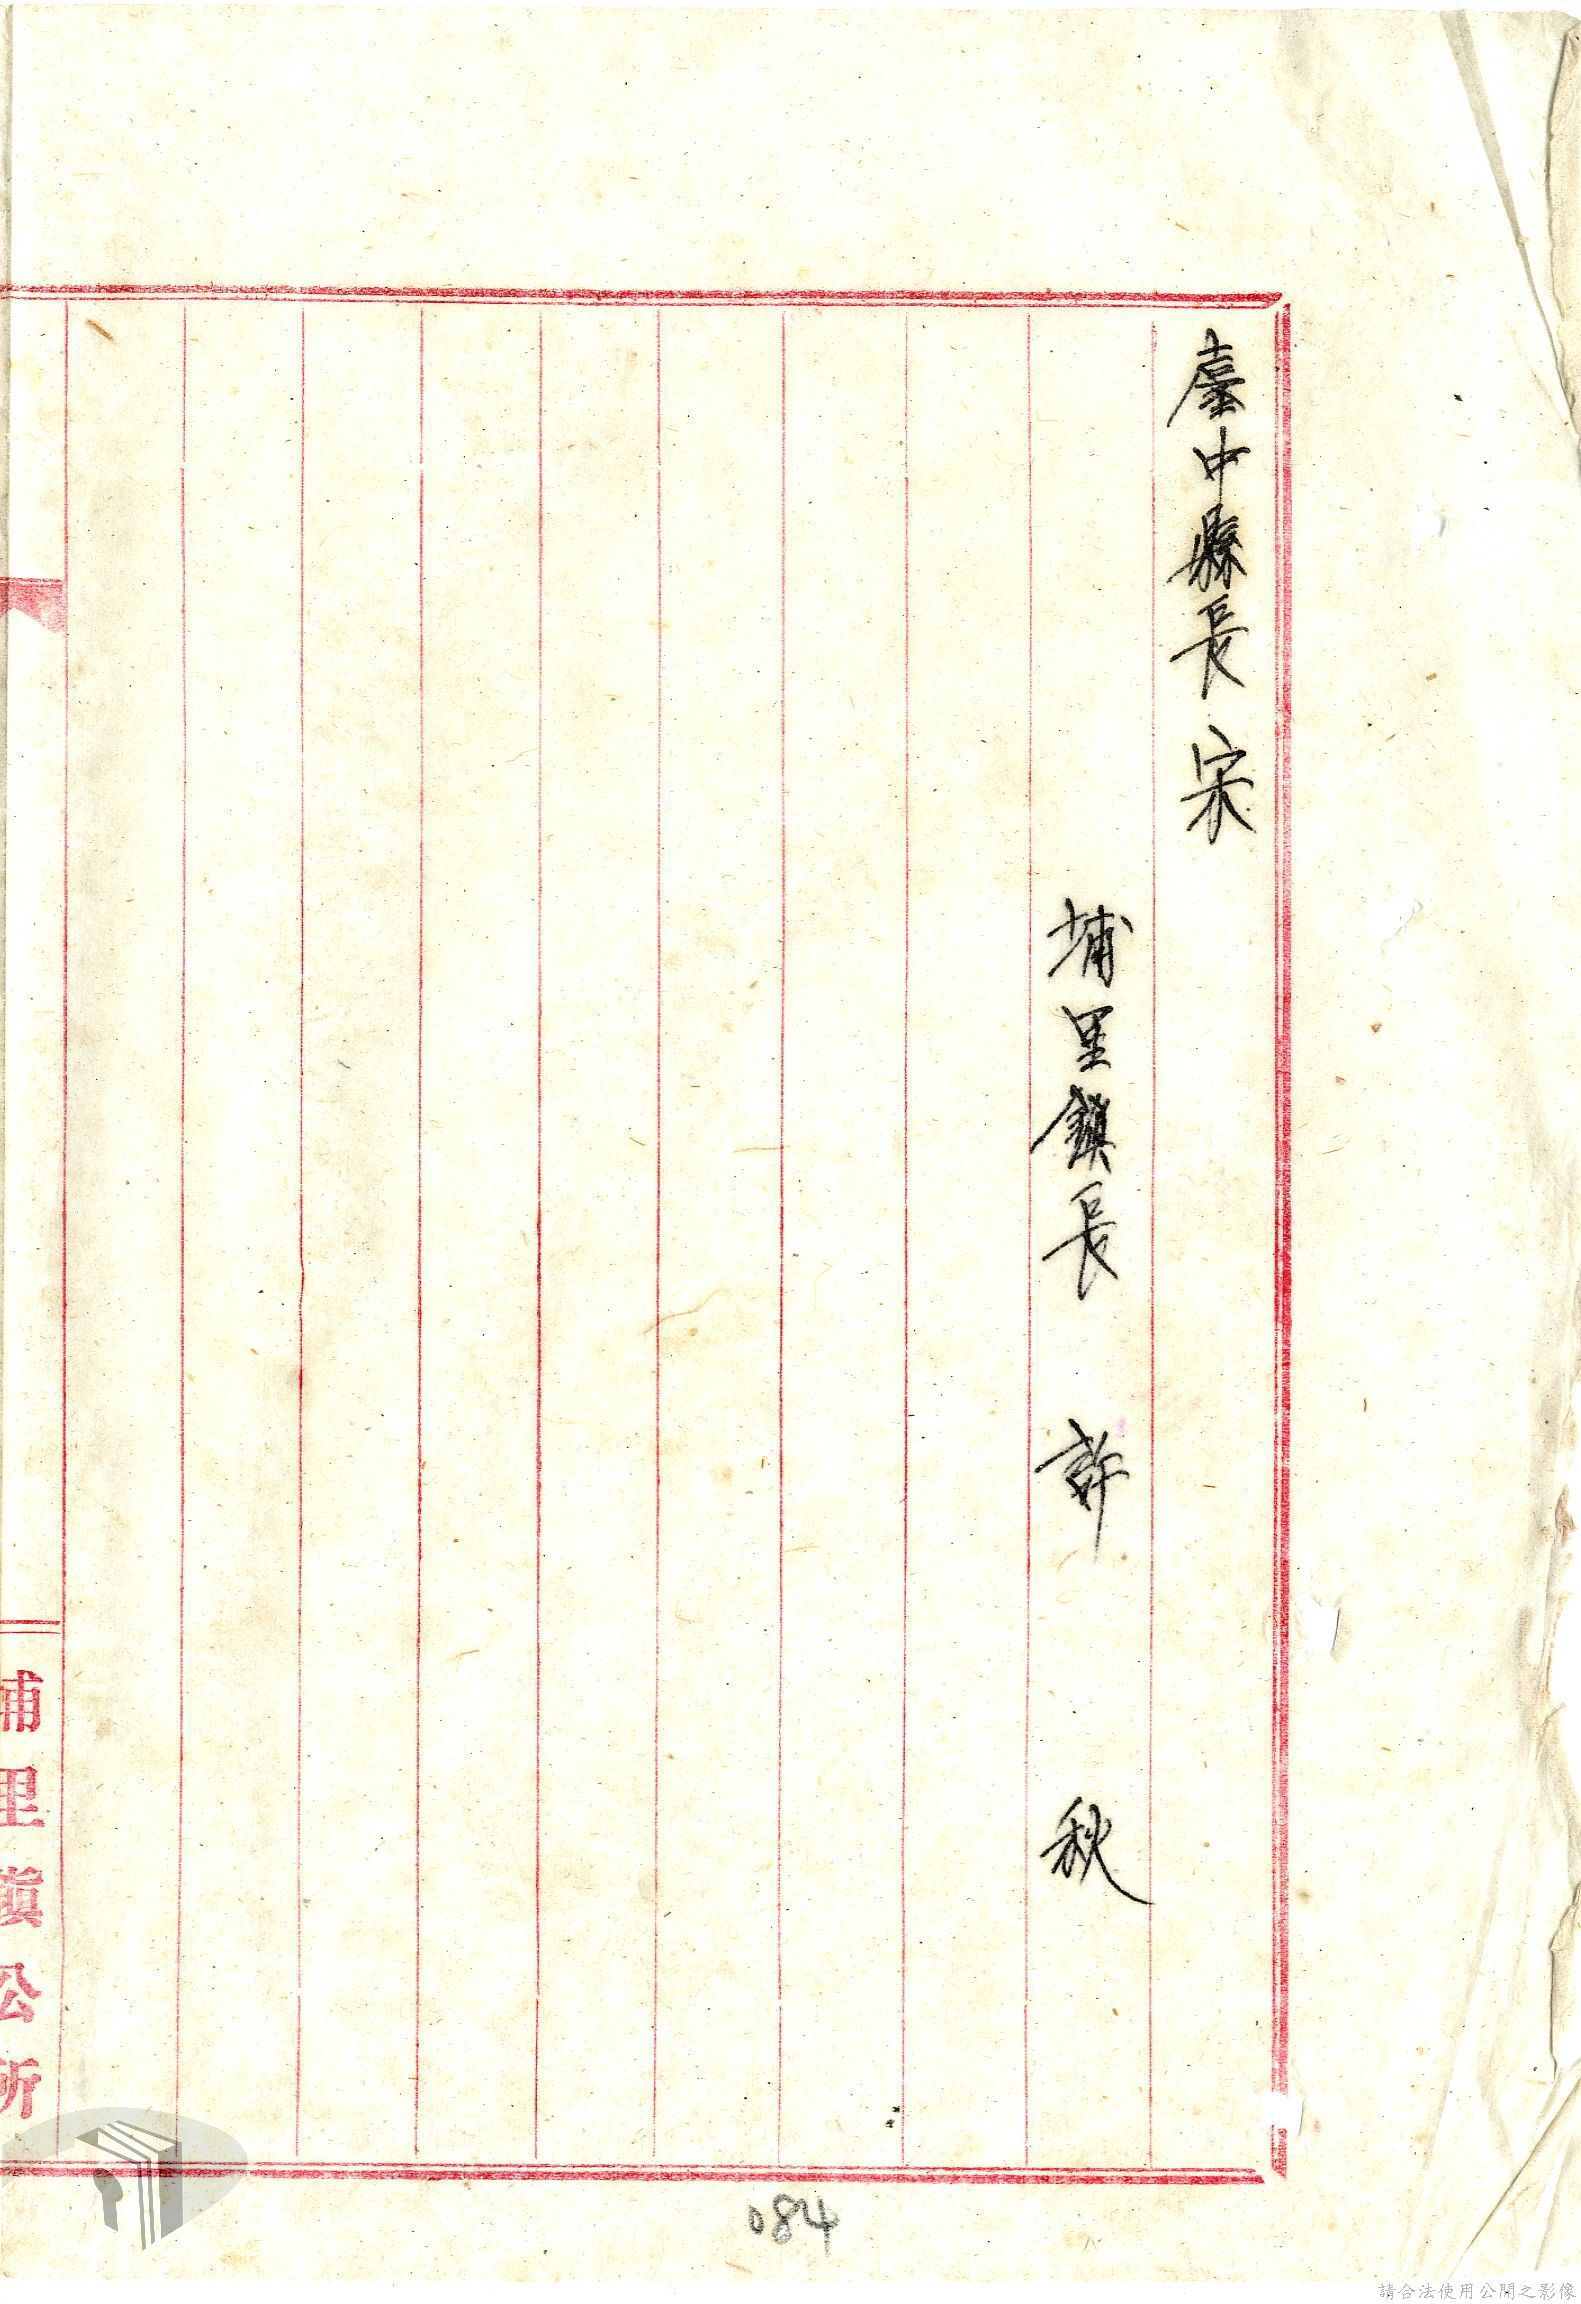 臺中縣長 宋
埔里鎮長 許 秋
埔里鎮公所
084
請合法使用公開之影像